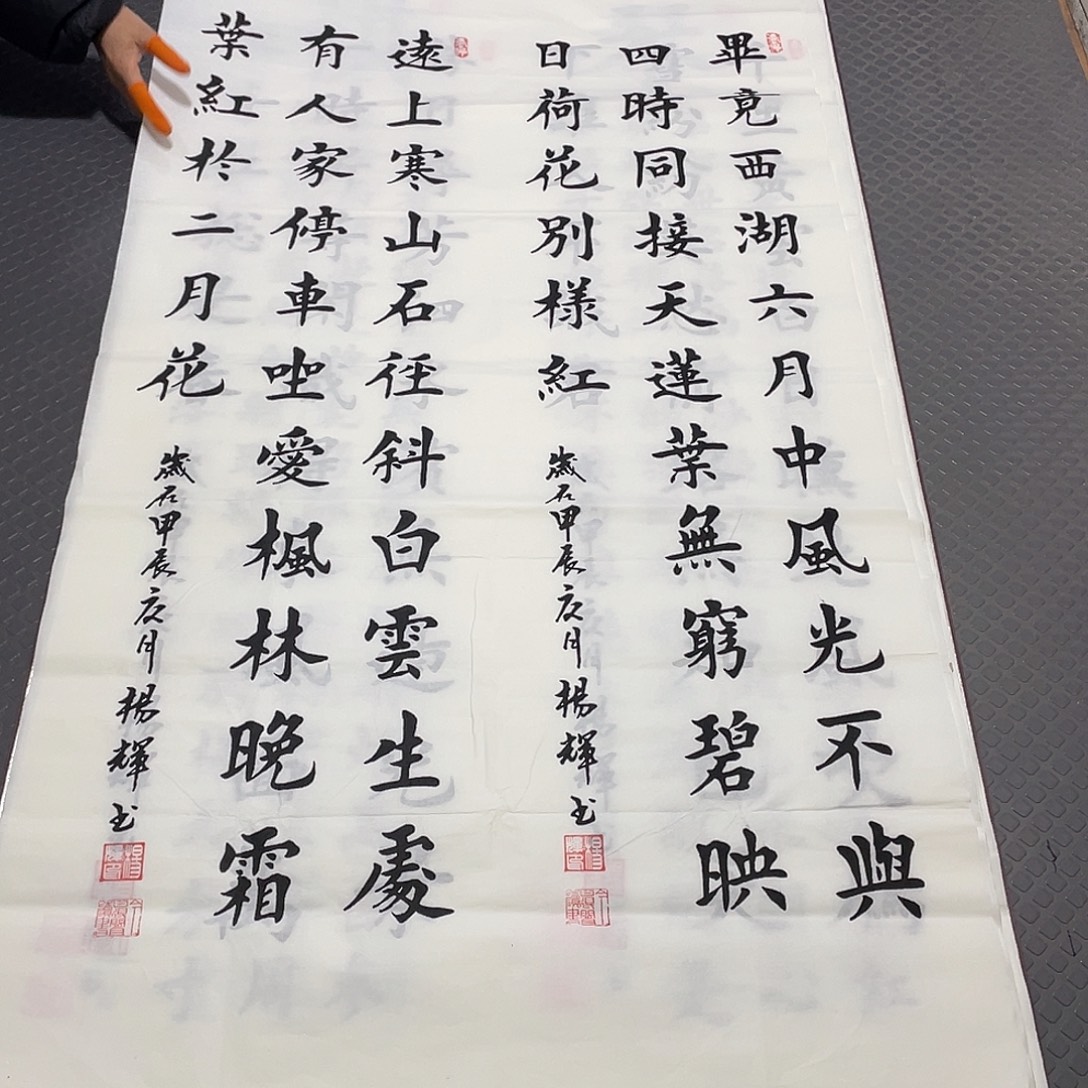 畢竟西湖六月中風光不與
四時同接天蓮葉無窮碧映
日荷花別樣紅
歲在甲辰月楊輝书
遠上寒山石徑斜白雲生處
有人家停車坐愛楓林晚霜
葉紅於二月花
歲在甲辰月楊輝书